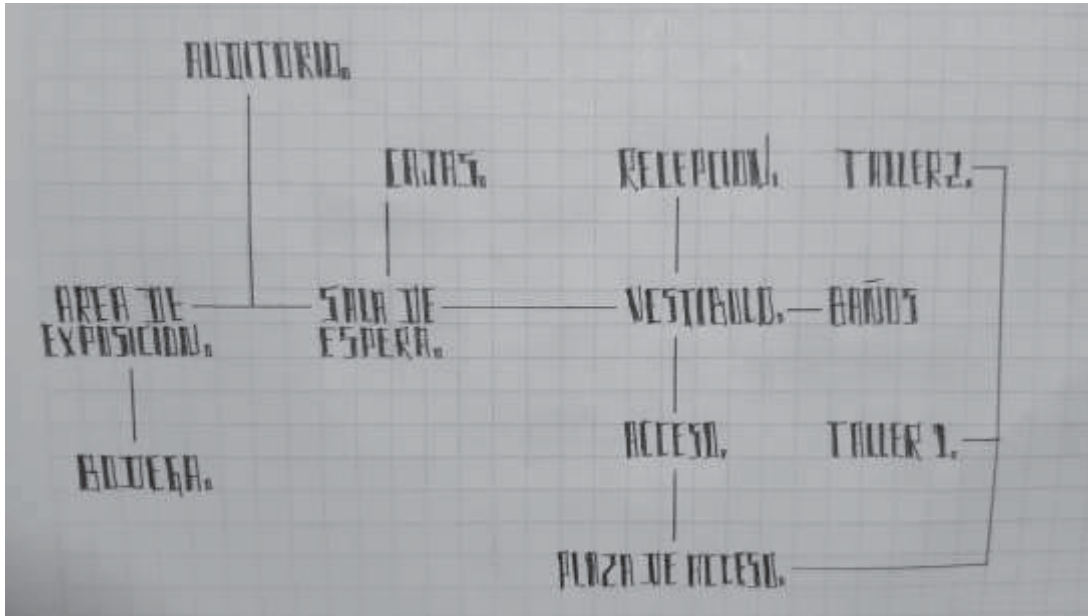 AUDITORIO.
CAJAS.
RECEPCION.
TALLER 2.
AREA DE
EXPOSICION.
SALA DE
ESPERA.
VESTIBULO.
BAÑOS
BODEGA.
ACCESO.
TALLER 1.
PLAZA DE ACCESO.